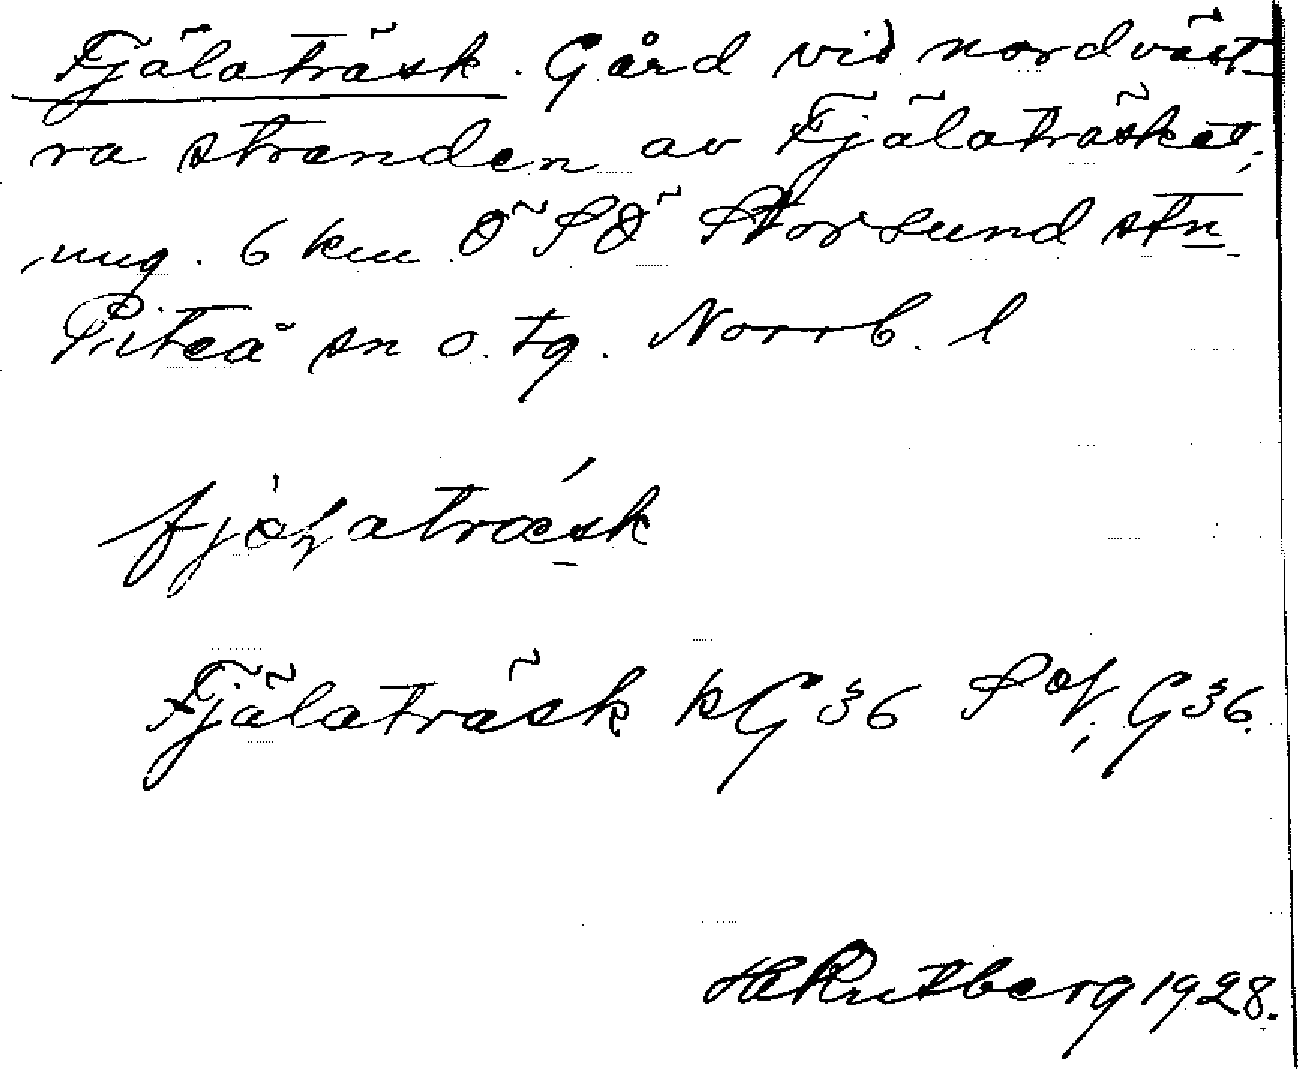 Fjälaträsk. Gård vid nordväst-
ra stranden av Fjälaträsket,
ung. 6 km ÖSÖ Storsund stn
Piteå sn o. tg. Norrb. l
Fjälaträsk kG36 SOV, G36.
H Rutberg 1928.